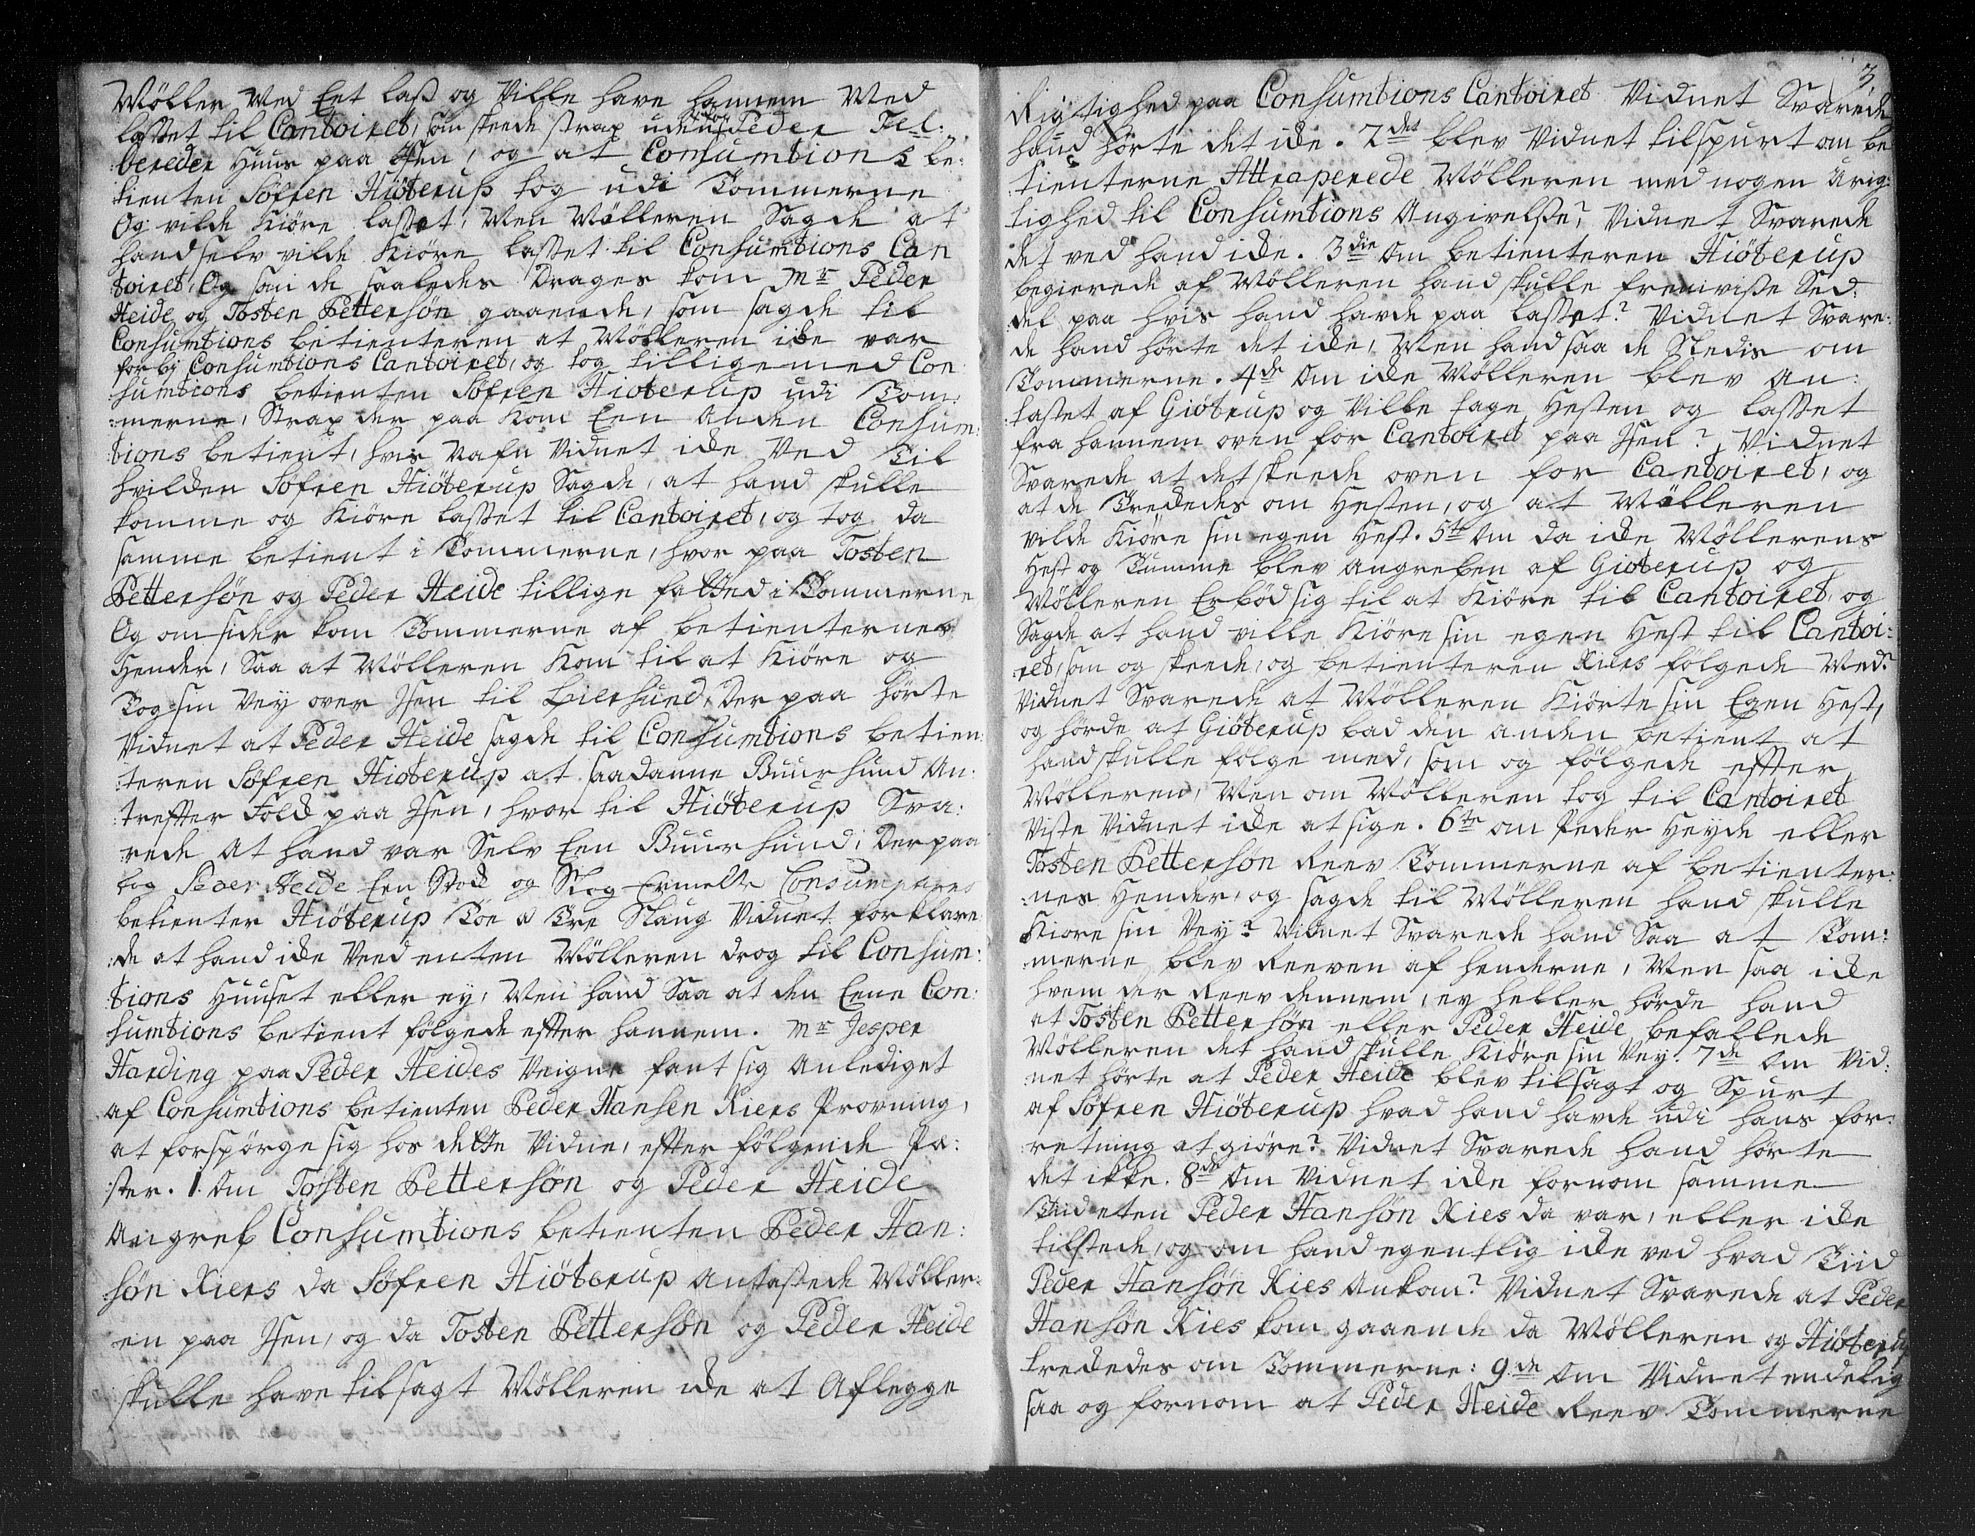 Møller Med Eet lass og Ville have hannem Med
lasset til Cantoiret, som skeede strax uden for Peder Fel:
bereder Huus paa Jsen, og at Consumtions be:
tienten Søfren Hiøterup tog udi Tømmerne
Og vilde Kiøre lasset, Men Mølleren Sagde at
hand selv vilde Kiøre lasset til Consumtions Can
toiret, Og som de saaledes Drages kom Mr Peder
Heide og Tosten Pettersøn gaaende, som sagde til
Consumtions betienteren at Mølleren icke var
forbi Consumtions Cantoiret, og tog tillige med Con
sumtions betienten Søfren Hiøterup udi Tøm:
:merne, Strax der paa Kom Een Anden Consum:
tions betient, hvis Nafn Vidnet icke Ved Til
hvilden Søfren Hiøterup Sagde, at hand skulle
komme og Kiøre lasset til Cantoiret, og tog da
samme betient i Tømmerne, hvor paa Tosten
Pettersøn og Peder Heide tillige fatted i Tømmerne
Og omsider kom Tømmerne af betienternes
Hender, Saa at Mølleren Kom til at Kiøre og
Tog sin Vey over Jsen til Liersund, Der paa hørte
Vidnet at Peder Heide sagde til Consumtions betien:
:teren Søfren Hiøterup at saadanne Buurhund An:
:treffer Folck paa Jsen, hvor til Hiøterup Sva:
:rede At hand var Selv Een Buurhund, Derpaa
tog Peder Heide Een Stock og Slog Ermelte Consumptions
betienter Hiøterup Toe a Tre Slaug Vidnet forklare
:de at hand icke Veed enten Mølleren drog til Consum:
tions Huuset eller ey, Men hand Saa at den Eene Con:
sumtions betient følgede effter hannem. Mr Jesper
Harding paa Peder Heides Veigne fant sig Anlediget
af Consumtions betienten Peder Hansen Riers Provning,
at forspørge sig hos dette Vidne, effter følgende Po:
:ster. 1. Om Tosten Pettersøn og Peder Heide
Angreb Consumtions betienten Peder Han:
søn Riers da Søfren Hiøterup Antastede Møller:
en paa Jsen, og da Tosten Pettersøn og Peder Heide
skulle have tilsagt Mølleren icke at Aflegge
3
Rigtighed paa Consumtions Cantoiret Vidnet Svarede
hand hørte det icke. 2det blev Vidnet tilspurt om be
tienterne Attraperede Mølleren med nogen Urig:
tighed til Consumtions Angivelsse? Vidnet Svarede
det ved hand icke. 3die Om betienteren Hiøterup
begierede af Mølleren hand skulle fremvisse Sed:
del paa hvis hand havde paa lasset? Vidnet Svare:
de hand hørte det icke, Men hand saa de Stedis om
Tømmerne. 4de Om icke Mølleren blev An:
tastet af Giøtrup og Ville tage Hesten og lasset
fra hannem oven for Cantoiret paa Jsen? Vidnet
Svarede at det skeede oven for Cantoiret, og
at de Treckedes om Hesten, og at Mølleren
vilde Kiøre sin egen Hest. 5te Om da icke Møllerens
Hest og Tømme blev angreben af Giøterup og
Mølleren Erbød sig til at Kiøre til Cantoiret, og
Sagde at hand ville Kiøre sin egen Hest til Cantoi:
ret, som og skeede, og betienteren Riers følgede Med?
Vidnet Svarede at Mølleren Kiørte sin Egen Hest,
og hørde at Giøterup bad den anden betient at
hand skulle følge med, som og følgede effter
Mølleren, Men om Mølleren tog til Cantoiret
Viste Vidnet icke at sige. 6te om Peder Heyde eller
Tosten Pettersøn Reev Tømmerne af betienter:
:nes Hender, og sagde til Mølleren hand skulle
Kiøre sin Vey? Vidnet Svarede hand Saa at Tøm:
merne blev Reeven af henderne, Men saa icke
hvem der Reev dennem, ey heller hørde hand
at Tosten Pettersøn eller Peder Heide befallede
Mølleren det hand skulle Kiøre sin Vey. 7de Om Vid:
:net hørte at Peder Heide blev tilsagt og Spurt
af Søfren Hiøterup hvad hand havde udi hans for:
retning at giøre? Vidnet Svarede hand hørte
det ikke. 8de Om Vidnet icke fornom samme
Tiid eten Peder Hansøn Ries da var, eller icke
tilstede, og om hand egentlig icke ved hvad Tiid
Peder Hansøn Ries Ankom? Vidnet Svarede at Peder
Hansøn Ries kom gaaende da Mølleren og Hiøterup
treckedes om Tømmerne: 9de Om Vidnet endelig
saa og fornom at Peder Heide Reev Tømmerne